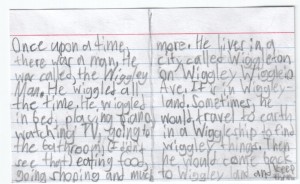 Once upon a time,
there was a man. He
was called, the Wiggley
Man. He wiggled all
the time. He wiggled
in bed, playing piano
watching TV, going to
the bathroom (I didn't
see that) eating food,
going shoping and much
more. He lives in a
city called Wiggleton
on Wiggley Wiggled
Ave. It is in Wiggley-
land. Sometimes, he
would travel to earth
in a Wiggleship to find
wiggley things. Then
he would come back
to Wiggley land and